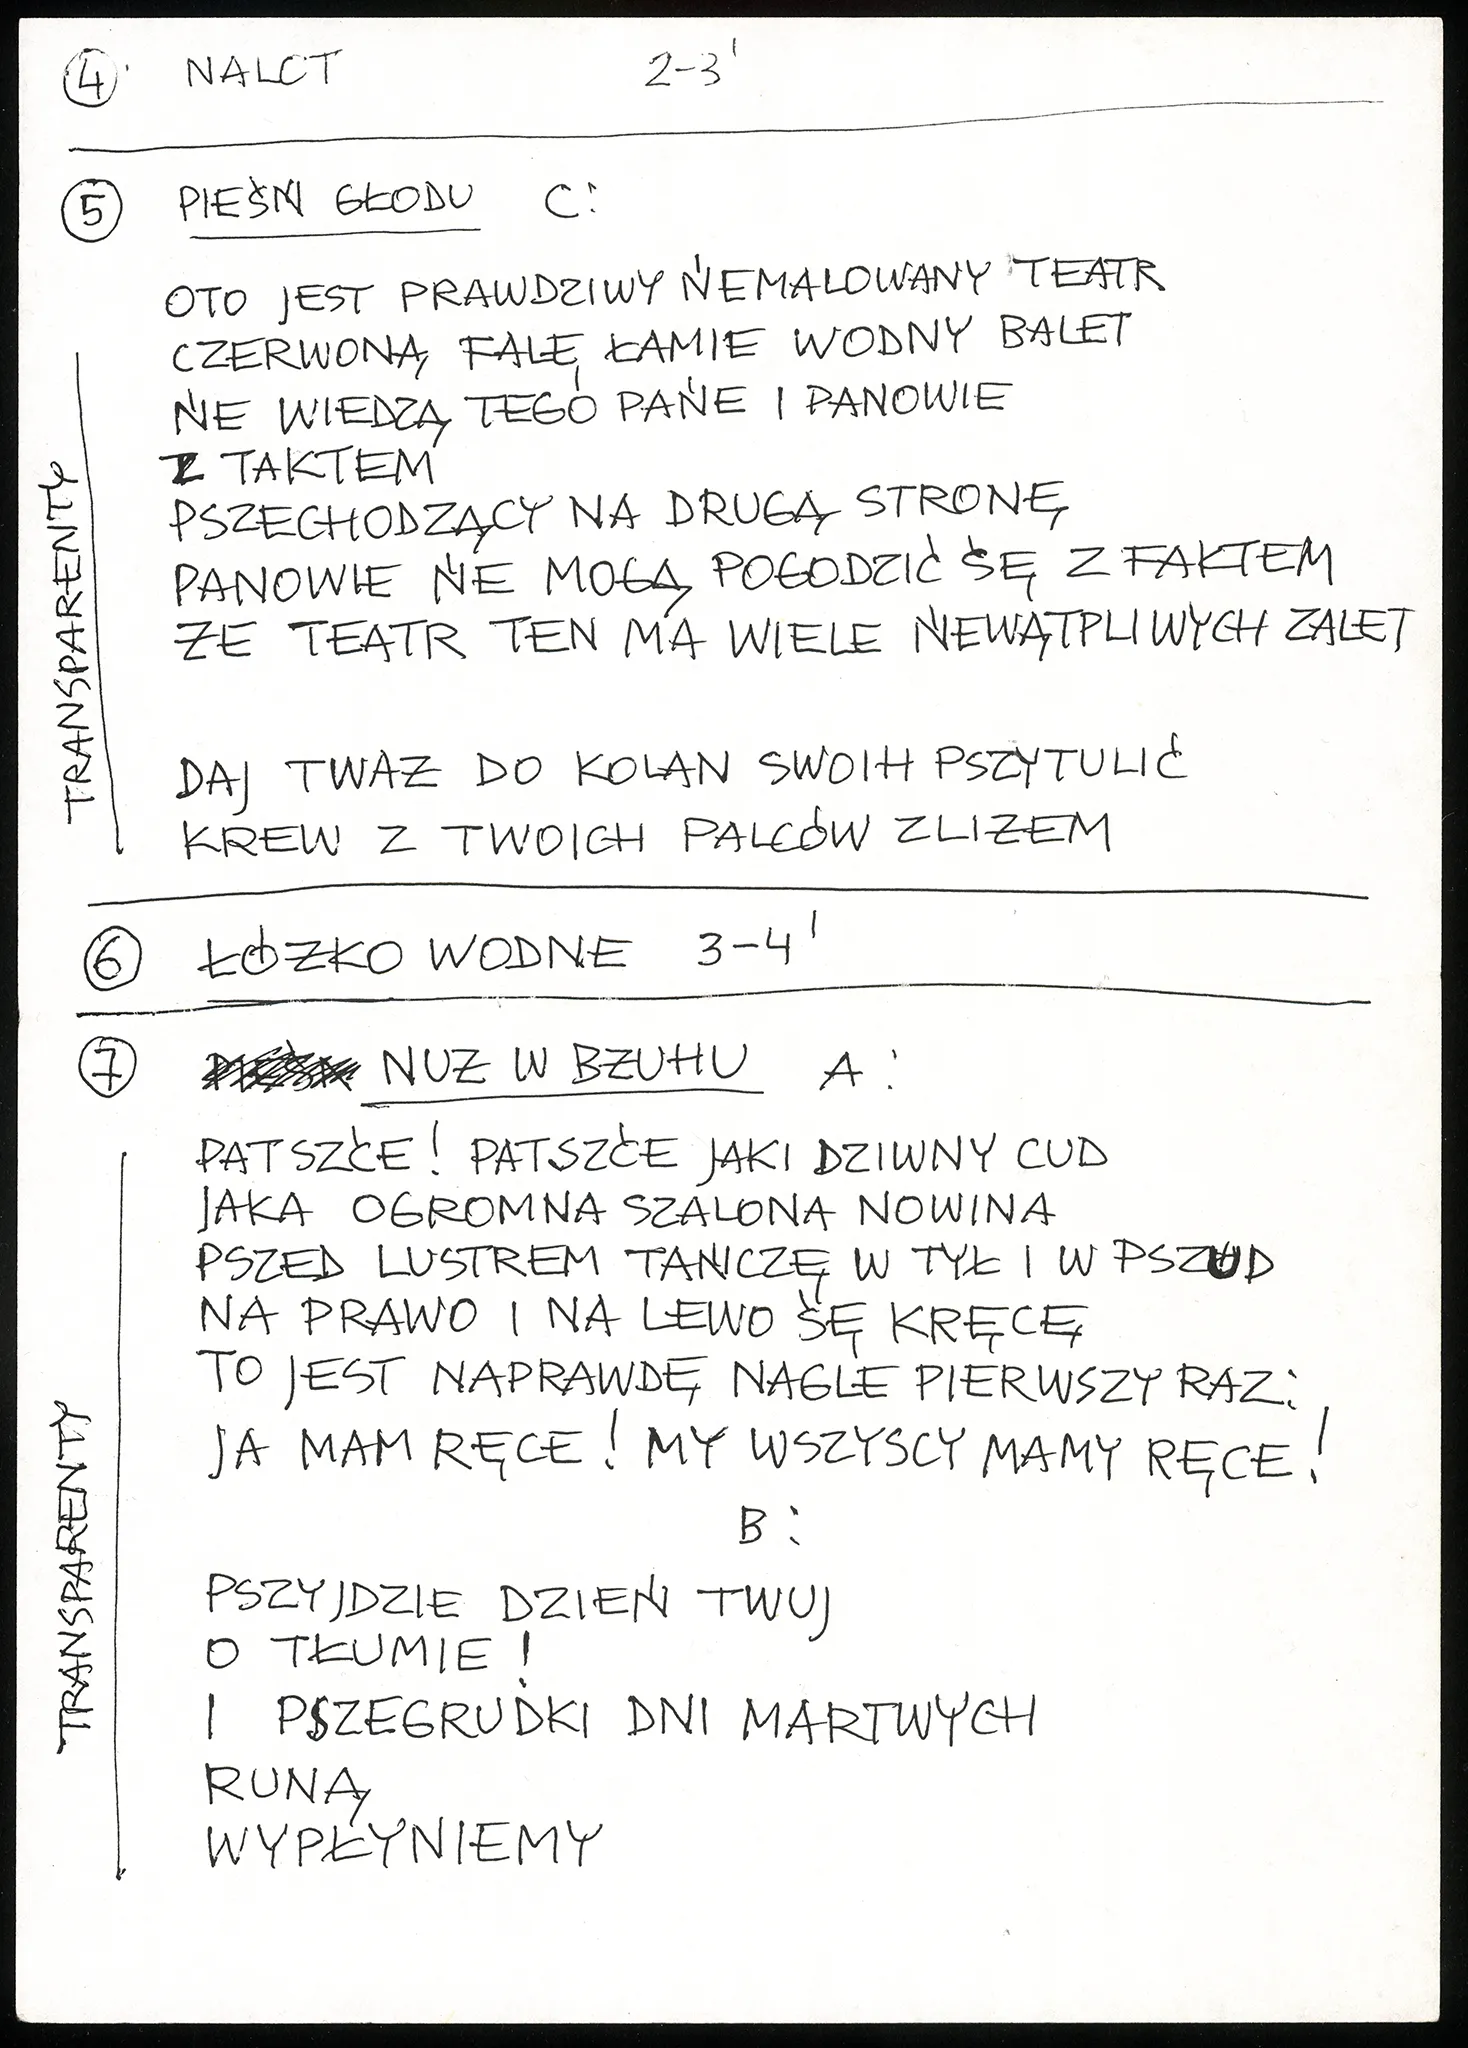 ④ NALOT 2-3'
⑤ PIEŚŃ GŁODU C:
OTO JEST PRAWDZIWY ŃEMALOWANY TEATR
CZERWONĄ FALĘ ŁAMIE WODNY BALET
ŃE WIEDZĄ TEGO PAŃE I PANOWIE
Z TAKTEM
PSZECHODZĄCY NA DRUGĄ STRONĘ
PANOWIE ŃE MOGĄ POGODZIĆ ŚĘ Z FAKTEM
ŻE TEATR TEN MA WIELE ŃEWĄTPLIWYCH ZALET
DAJ TWAŻ DO KOLAN SWOIH PSZYTULIĆ
KREW Z TWOICH PALCÓW ZLIŻEM
TRANSPARENTY
⑥ ŁÓŻKO WODNE 3-4'
⑦ NUŻ W BŻUHU A:
PATSZĆE! PATSZĆE JAKI DZIWNY CUD
JAKA OGROMNA SZALONA NOWINA
PSZED LUSTREM TAŃCZĘ W TYŁ I W PSZUD
NA PRAWO I NA LEWO ŚĘ KRĘCĘ
TO JEST NAPRAWDĘ NAGLE PIERWSZY RAZ:
JA MAM RĘCE! MY WSZYSCY MAMY RĘCE!
B:
PSZYJDZIE DZIEŃ TWUJ
O TŁUMIE!
I PSZEGRUDKI DNI MARTWYCH
RUNĄ
WYPŁYNIEMY
TRANSPARENTY